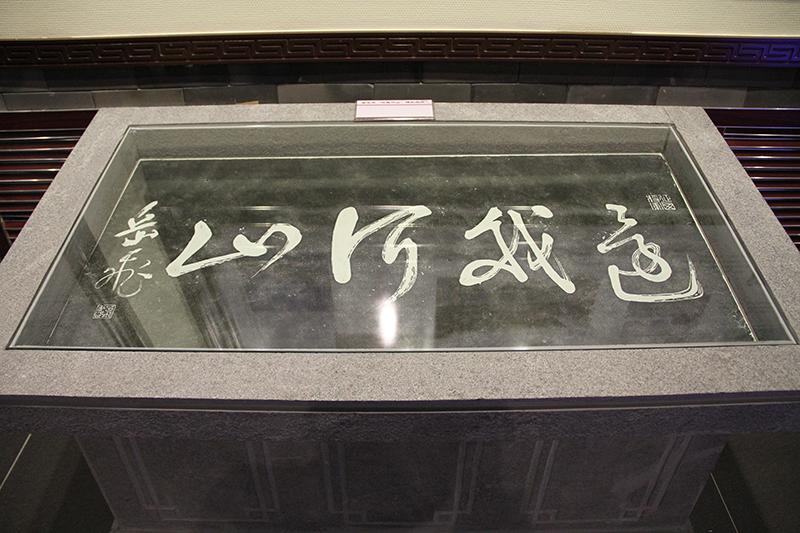 還我河山
岳飛